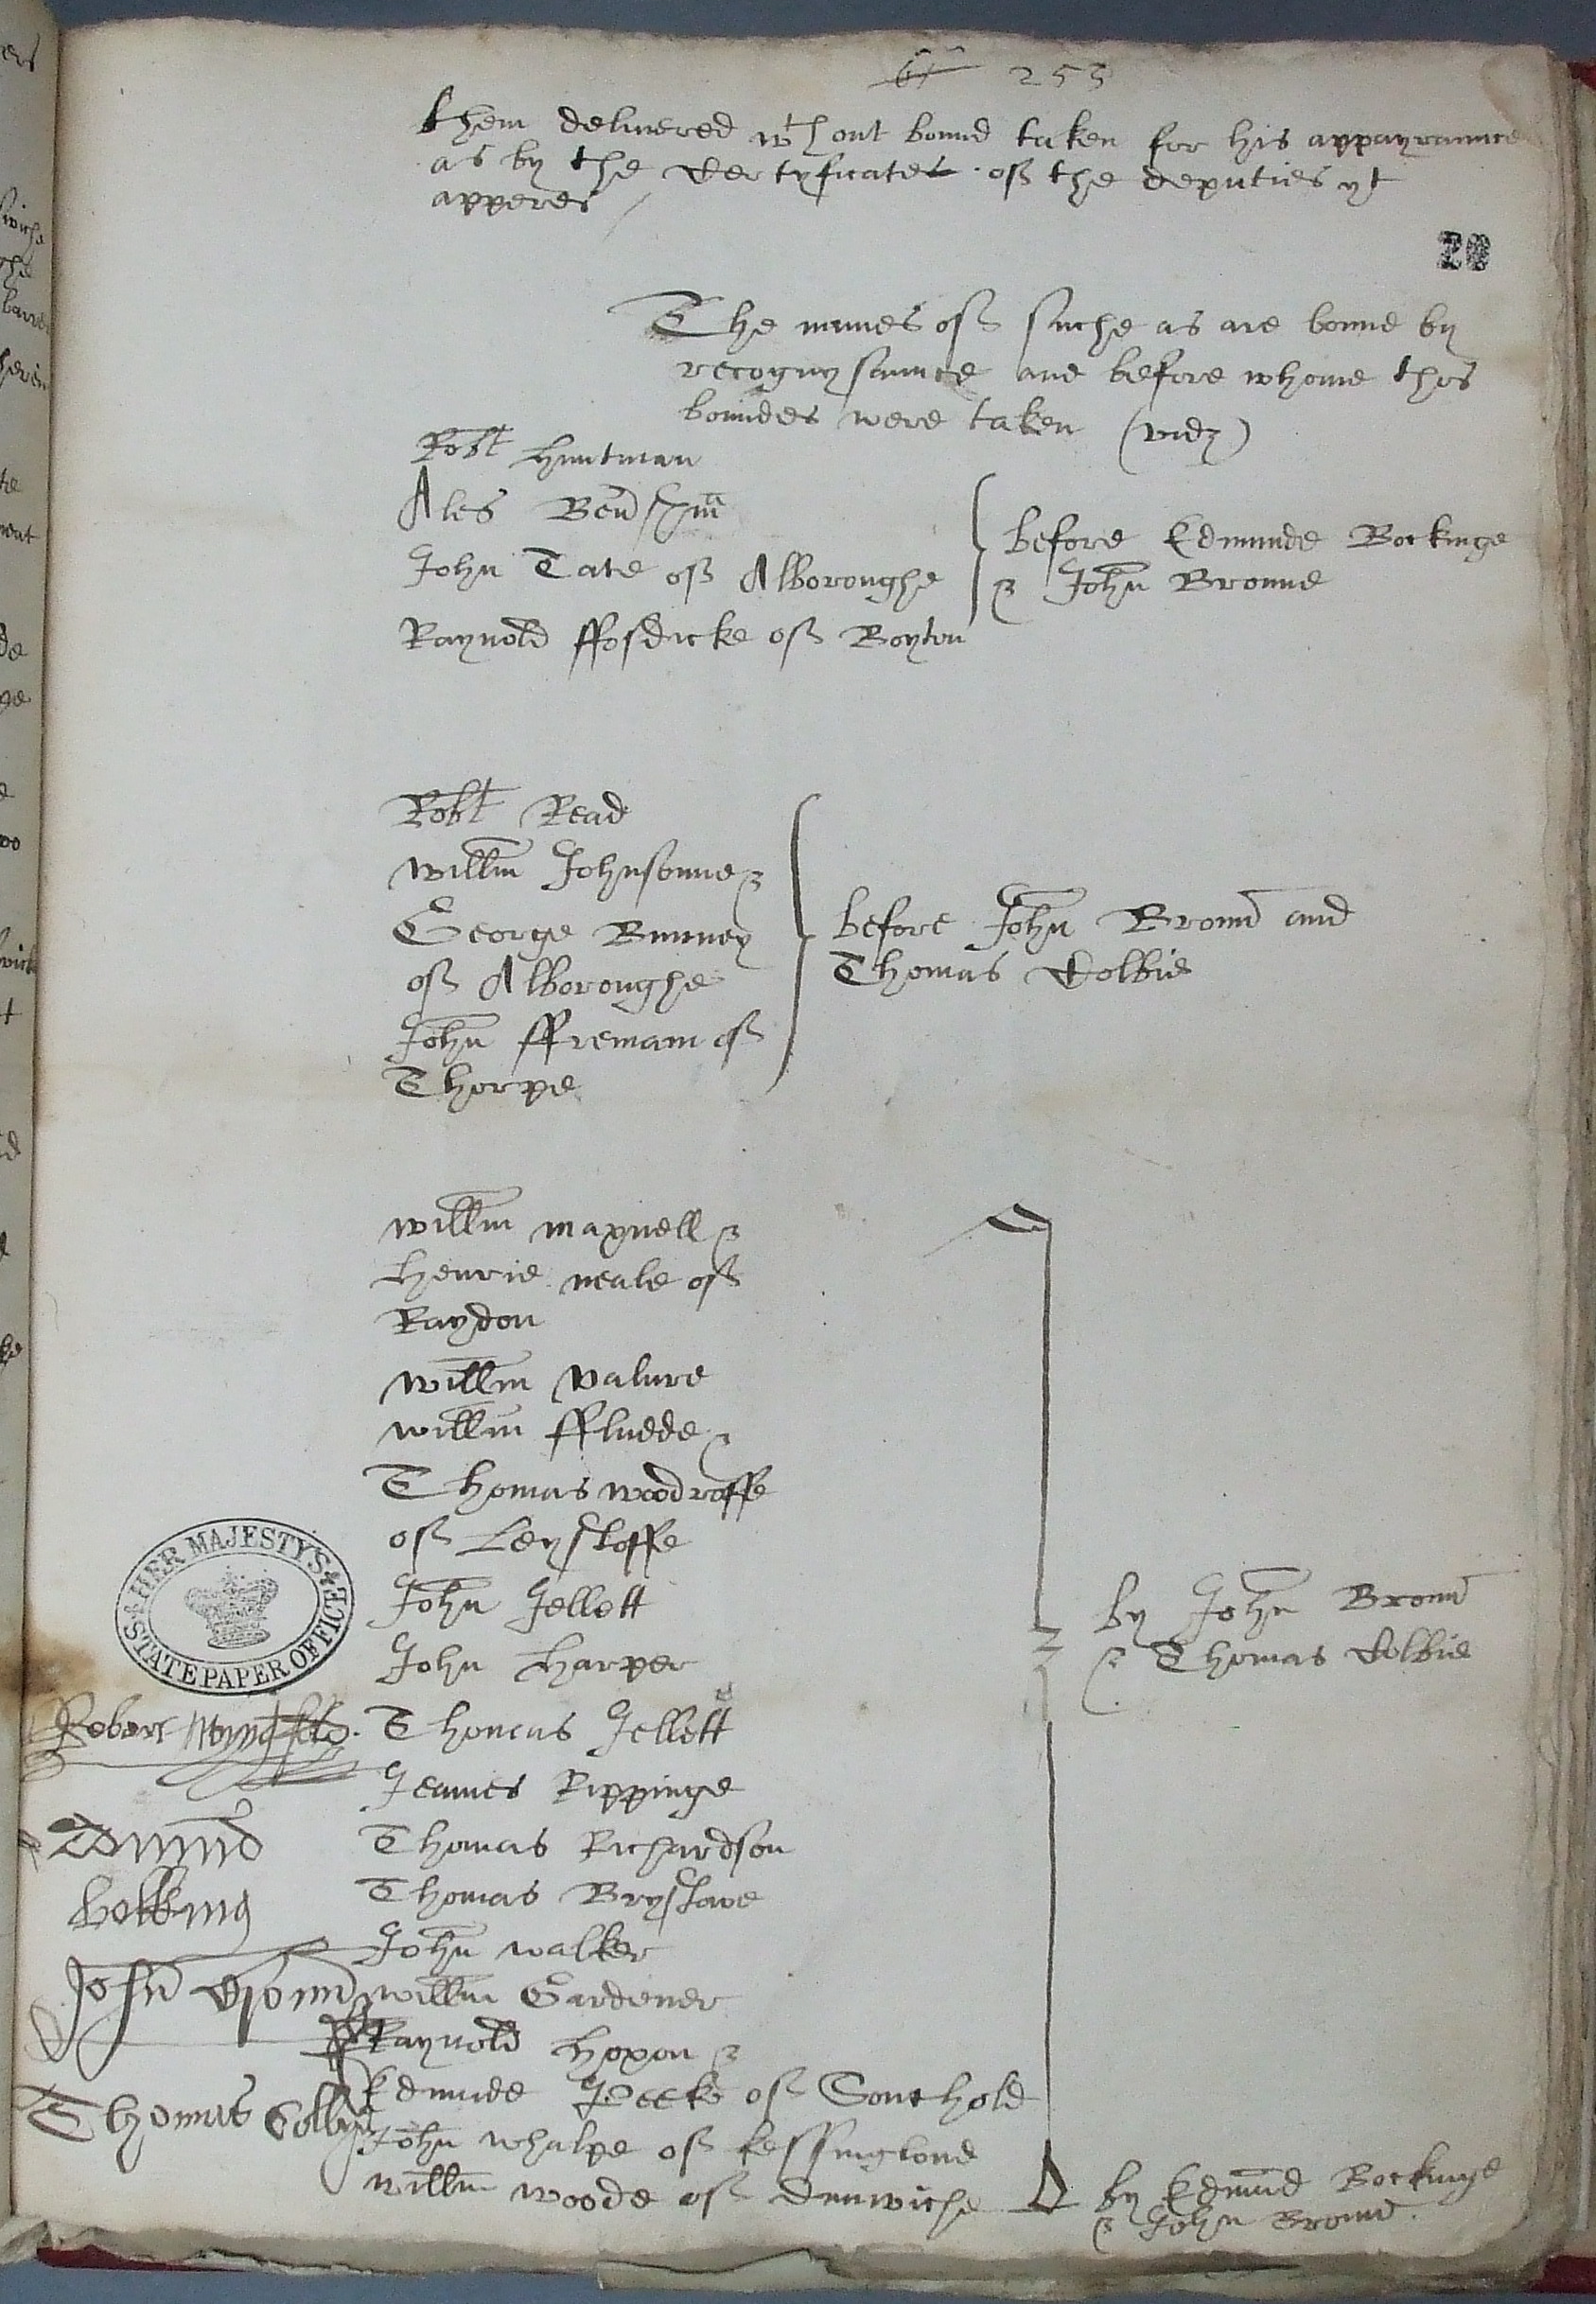 253
them delivered wthout bound taken for his appayraunce
as by the Certyficates of the deputies yt
apperes /
20
The names of suche as are boune by
recognysaunce and before whome thes
boundes were taken (vidz)
Robt Huntman
Ales
John Tate of Alboroughe
Raynold ffosdicke of Boyton
before Edmunde Bockinge
& John Broune
Robt Read
Willm Johnsonne &
George Bunney
of Alboroughe
John ffremam of
Thorpe
before John Broun and
Thomas Colbie
Willm maxnell &
Henrie neale of
Raydon
Willm Valure
Willm ffludde &
Thomas Woodroffe
of Leystoffe
John Jellett
John Harper
Thomas Jellett
Jeames Rippinge
Thomas Richardson
Thomas Brystave
John Walker
Willm Gardener
Raynold Hoxon &
Edmude Peeke of Southold
John Whalpe of kessinglond
Willm Woode of dunwiche
by John Broun
& Thomas Colbie
by Edmund Bockinge
& John Broun.
HER MAJESTY'S STATE PAPER OFFICE
Robert Wyngfeld.
Edmund
Bokking
John Broun
Thomas Colby